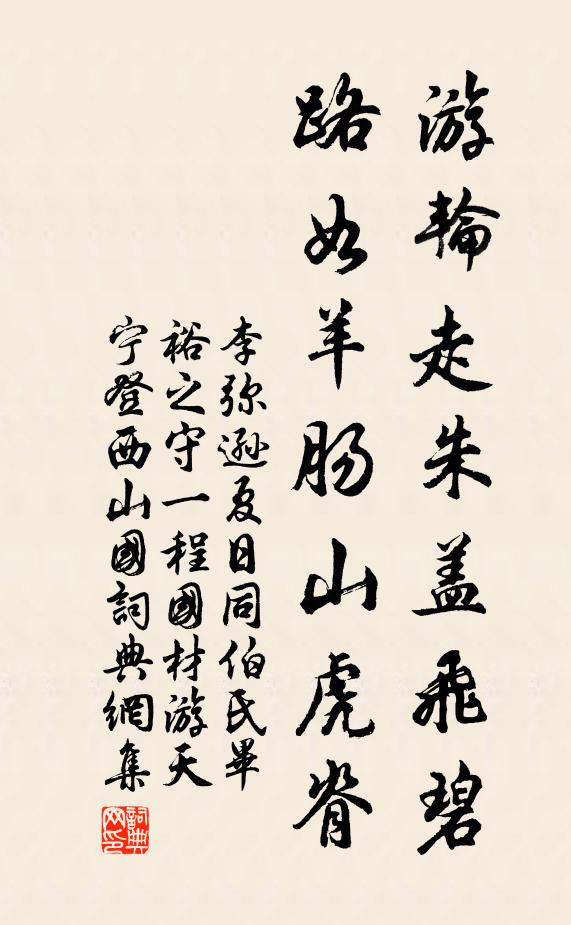 游輪走朱盖飛碧
路如羊肠山虎脊
李弥遜夏日同伯氏畢
裕之守一程國材游天
宁登西山國詞典網集
詞典网印